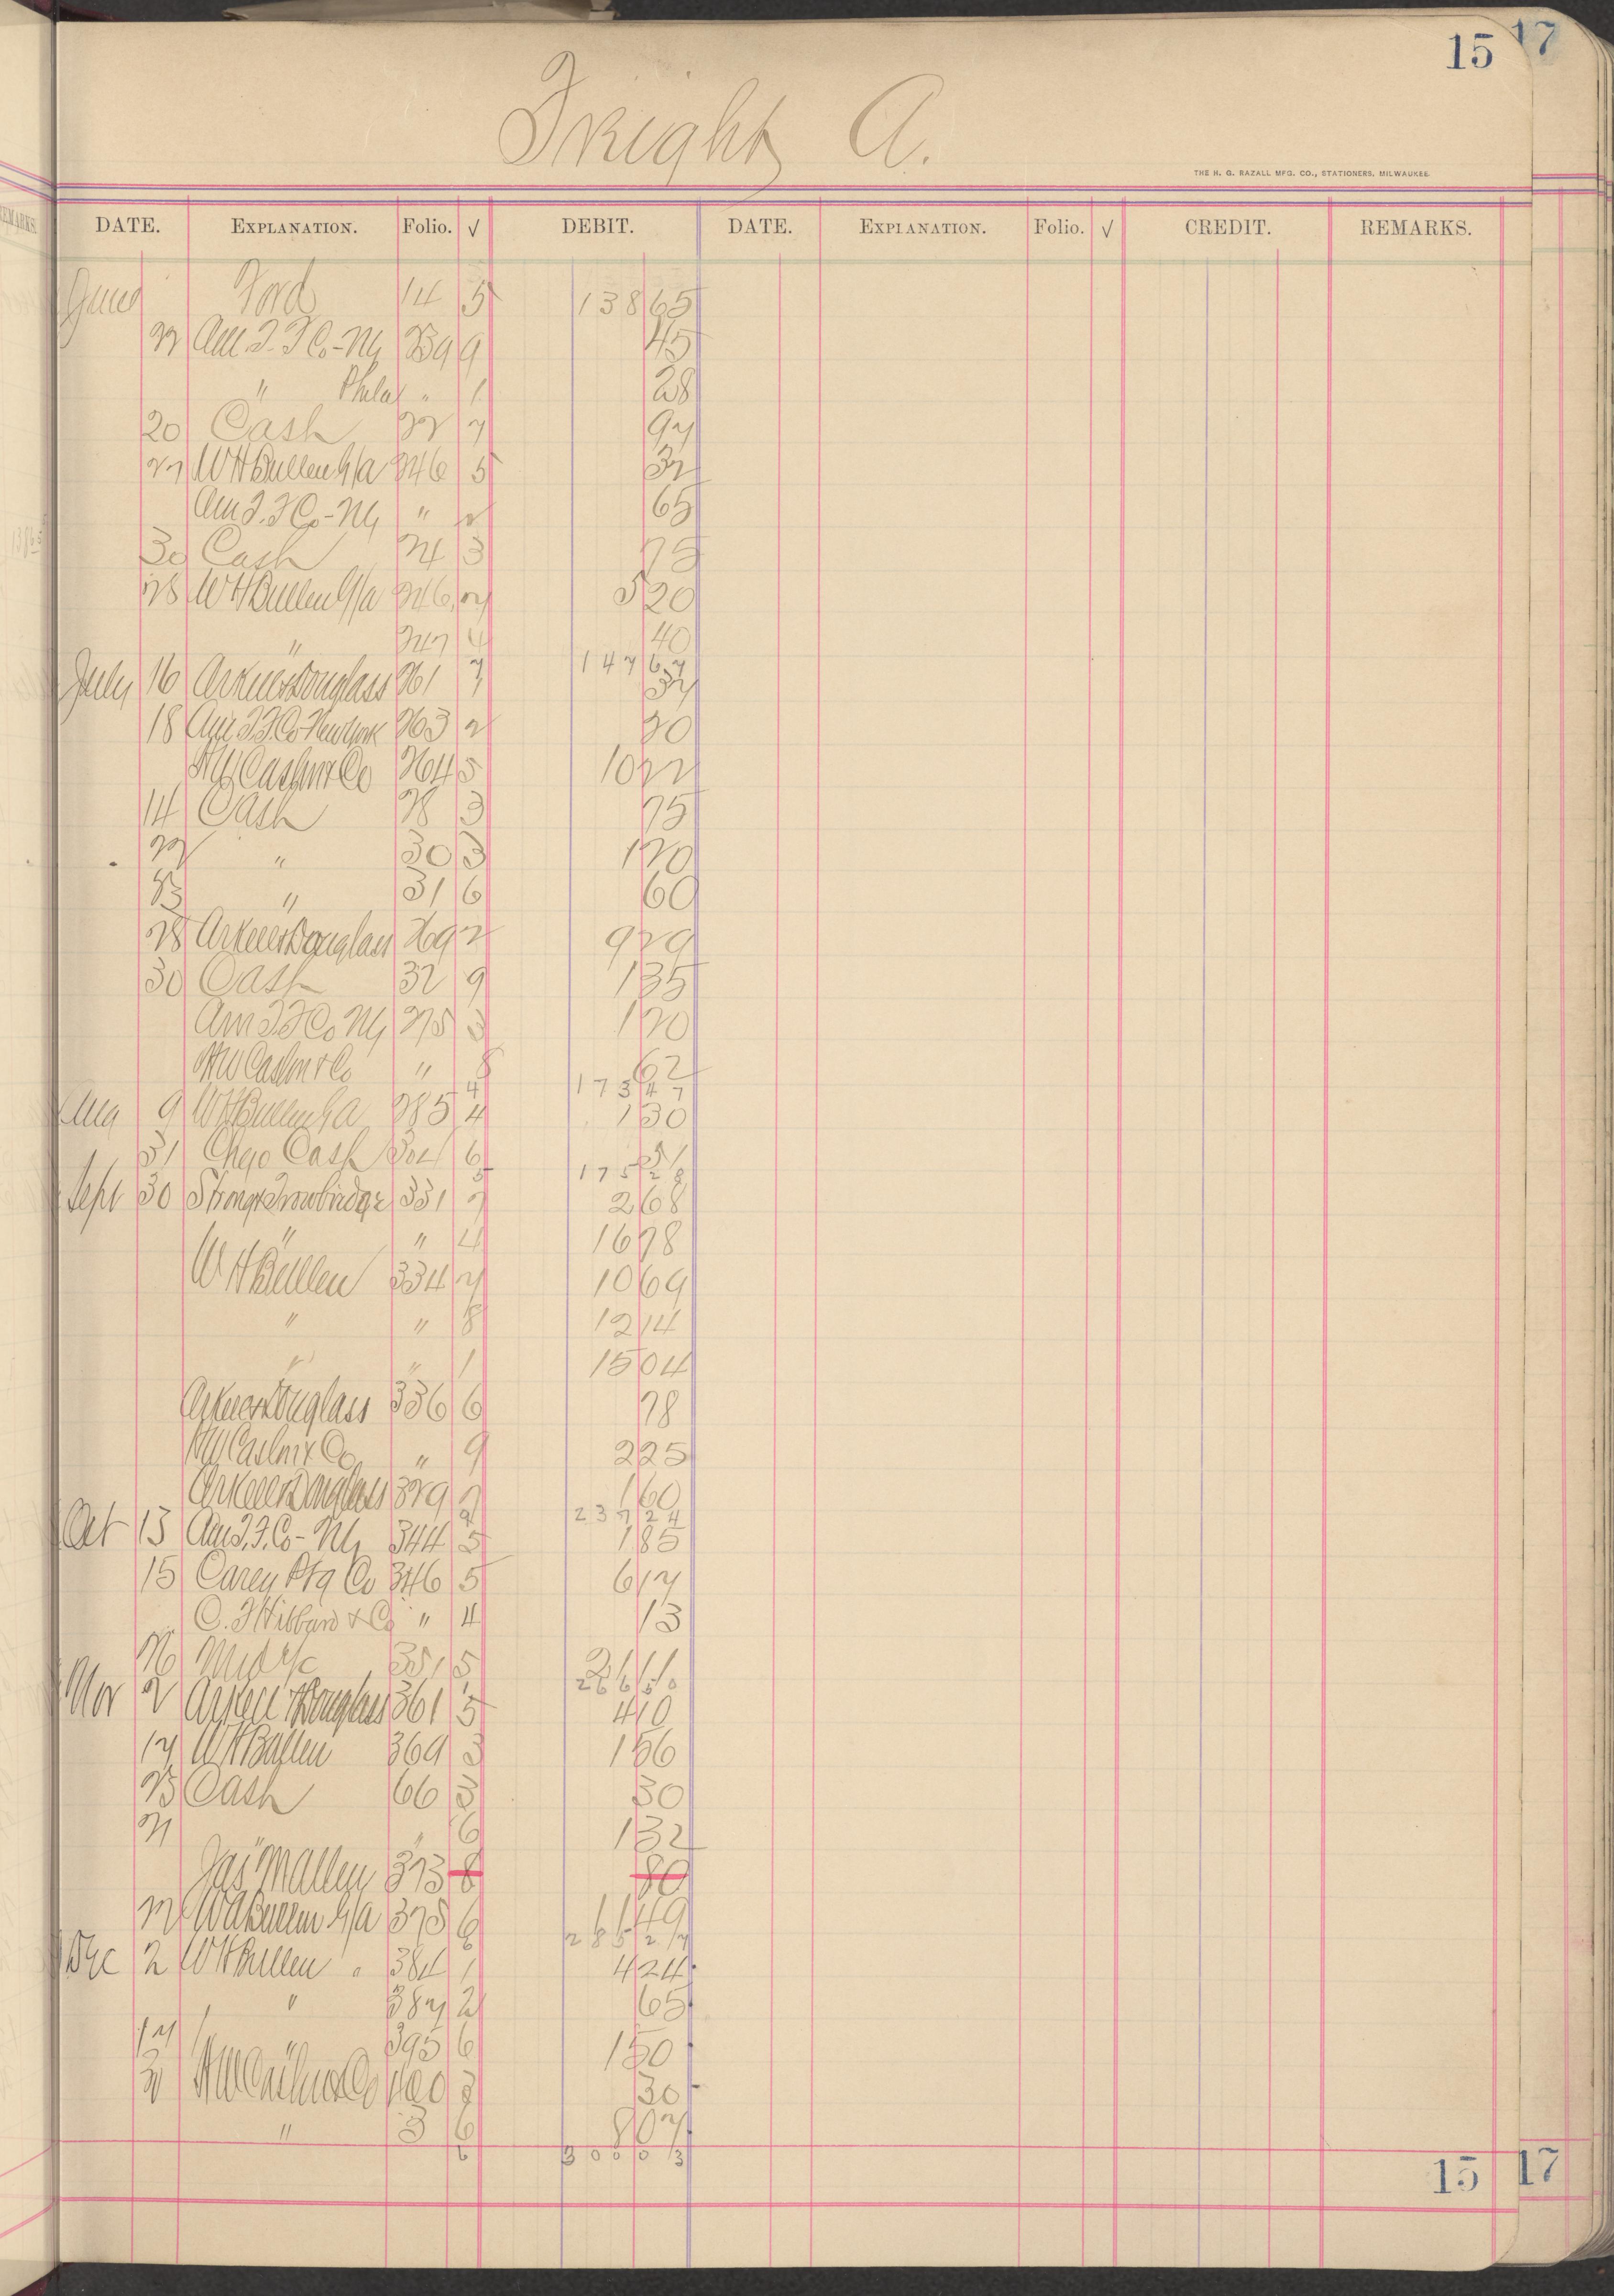 15 17
Freight A.
THE H. G. RAZALL MFG. CO., STATIONERS, MILWAUKEE.
DATE. EXPLANATION. Folio. √ DEBIT. DATE. EXPLANATION. Folio. √ CREDIT. REMARKS.
June Ford 14 5 138 65
22 Am T. F Co - Ny 239 9 45
" Phila " 1 28
20 Cash 22 7 97
27 W H Bullen G/a 246 5 32
Am T. F Co - Ny " 2 65
30 Cash 24 3 75
28 W H Bullen G/a 246 7 5 20
" 247 4 40
147 67
July 16 Arkell & Douglass 261 7 37
18 Am T. F. Co New York 263 2 20
N W Cashni & Co 264 5 10 22
14 Cash 28 3 75
22 " 30 3 1 20
23 " 31 6 60
28 Arkell & Douglass 269 2 9 29
30 Cash 32 9 1 35
Am T. F Co Ny 275 3 1 20
N W Cashni & Co " 8 62
4 173 47
Aug 9 W H Bullen G/A 285 4 1 30
31 Chgo Cash 304 6 51
5 175 28
Sept 30 Strong & Trowbridge 331 7 2 68
" " 4 16 78
W H Bullen 334 7 10 69
" " 8 12 14
" " 1 15 04
Arkell & Douglass 336 6 78
N W Cashni & Co " 9 2 25
Arkell & Douglass 329 7 1 60
2 237 24
Oct 13 Am T. F. Co - Ny 344 5 1 85
15 Carey Ptg Co 346 5 6 17
C. F Hibbard & Co " 4 13
26 Mdse 351 5 21 11
266 50
Nov 2 Arkell & Douglass 361 5 4 10
17 W H Bullen 369 3 1 56
23 Cash 66 3 30
21 " 6 1 32
Jas Mallen 373 8 80
W H Bullen G/A 375 6 11 49
6 285 27
Dec 2 W H Bullen " 384 1 4 24
" 387 2 65
17 " 395 6 1 50
N W Cashni & Co 400 3 30
" 3 6 8 07
6 300 03
15 17